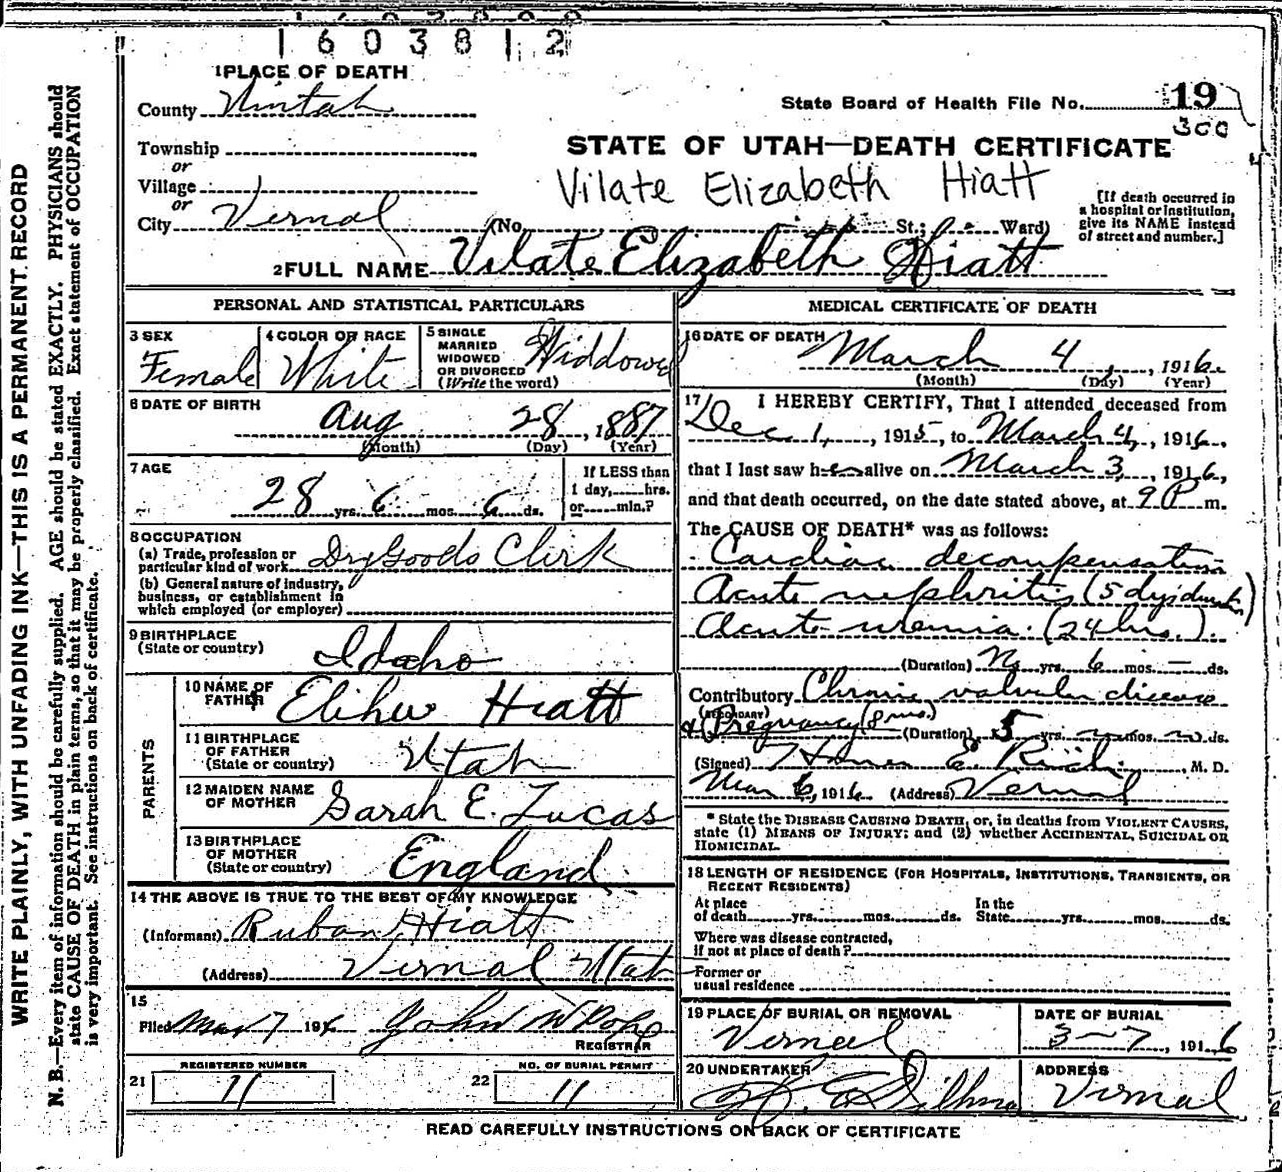 1603812
1 PLACE OF DEATH
County Uintah
State Board of Health File No. 19
300
Township
or
Village
or
City Vernal
STATE OF UTAH—DEATH CERTIFICATE
Vilate Elizabeth Hiatt
(No. St.; Ward)
[If death occurred in
a hospital or institution,
give its NAME instead
of street and number.]
2 FULL NAME Vilate Elizabeth Hiatt
PERSONAL AND STATISTICAL PARTICULARS
3 SEX
Female
4 COLOR OR RACE
White
5 SINGLE
MARRIED
WIDOWED
OR DIVORCED
(Write the word)
Widdowe
6 DATE OF BIRTH
Aug 28, 1887
(Month) (Day) (Year)
7 AGE
28 yrs. 6 mos. 6 ds.
If LESS than
1 day, hrs.
or min.?
8 OCCUPATION
(a) Trade, profession or
particular kind of work Dry Goods Clerk
(b) General nature of industry,
business, or establishment in
which employed (or employer)
9 BIRTHPLACE
(State or country)
Idaho
PARENTS
10 NAME OF
FATHER
Elihu Hiatt
11 BIRTHPLACE
OF FATHER
(State or country)
Utah
12 MAIDEN NAME
OF MOTHER
Sarah E. Lucas
13 BIRTHPLACE
OF MOTHER
(State or country)
England
14 THE ABOVE IS TRUE TO THE BEST OF MY KNOWLEDGE
(Informant) Ruban Hiatt
(Address) Vernal Utah
15
Filed Mar 7 1916 John W Pope
REGISTRAR
REGISTERED NUMBER
21 11
NO. OF BURIAL PERMIT
22 11
MEDICAL CERTIFICATE OF DEATH
16 DATE OF DEATH
March 4, 1916
(Month) (Day) (Year)
17 I HEREBY CERTIFY, That I attended deceased from
Dec 1, 1915, to March 4, 1916,
that I last saw her alive on March 3, 1916,
and that death occurred, on the date stated above, at 9 P m.
The CAUSE OF DEATH* was as follows:
Cardiac decompensation
Acute nephritis (5 dys duration)
Acute uremia. (24 hrs.)
(Duration) yrs. 6 mos. — ds.
Contributory Chronic valvular disease
(SECONDARY)
& Pregnancy (8 mos.) (Duration) 5 yrs. mos. ds.
(Signed) Homer E. Rich, M. D.
Mar 6, 1916 (Address) Vernal
* State the DISEASE CAUSING DEATH, or, in deaths from VIOLENT CAUSES,
state (1) MEANS OF INJURY; and (2) whether ACCIDENTAL, SUICIDAL OR
HOMICIDAL.
18 LENGTH OF RESIDENCE (FOR HOSPITALS, INSTITUTIONS, TRANSIENTS, OR
RECENT RESIDENTS)
At place
of death yrs. mos. ds.
In the
State yrs. mos. ds.
Where was disease contracted,
if not at place of death?
Former or
usual residence
19 PLACE OF BURIAL OR REMOVAL
Vernal
DATE OF BURIAL
3-7, 1916
20 UNDERTAKER
ADDRESS
Vernal
READ CAREFULLY INSTRUCTIONS ON BACK OF CERTIFICATE
WRITE PLAINLY, WITH UNFADING INK—THIS IS A PERMANENT RECORD
N. B.—Every item of information should be carefully supplied. AGE should be stated EXACTLY. PHYSICIANS should
state CAUSE OF DEATH in plain terms, so that it may be properly classified. Exact statement of OCCUPATION
is very important. See instructions on back of certificate.